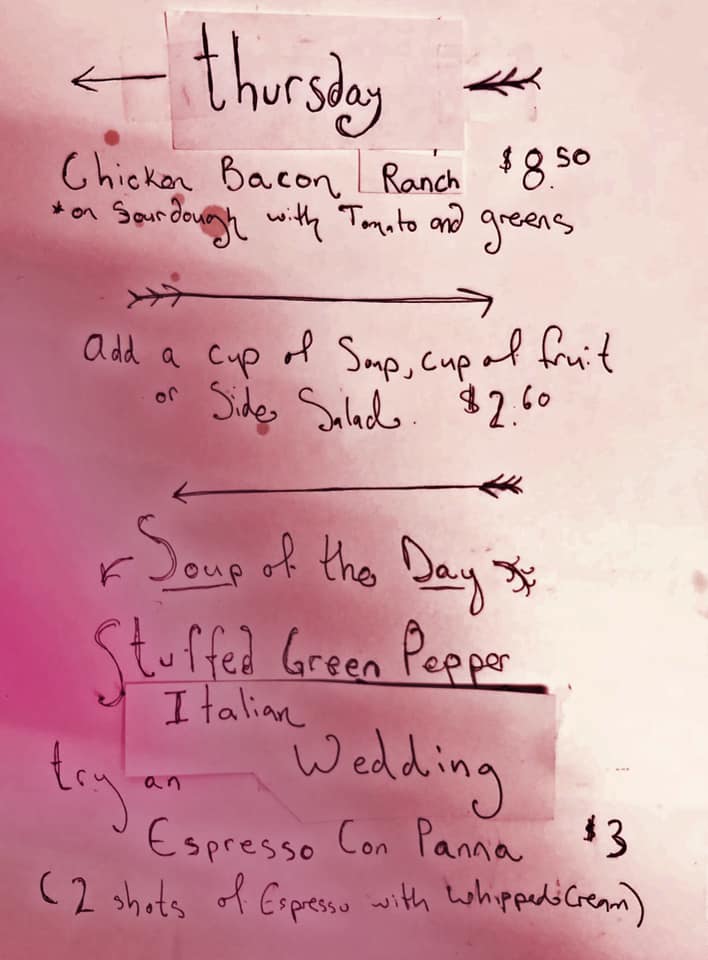 thursday
Chicken Bacon Ranch $8.50
*on Sourdough with Tomato and greens
add a cup of Soup, cup of fruit
or Side Salad. $2.60
Soup of the Day
Stuffed Green Pepper
Italian
Wedding
try an
Espresso Con Panna $3
(2 shots of Espresso with Whipped Cream)